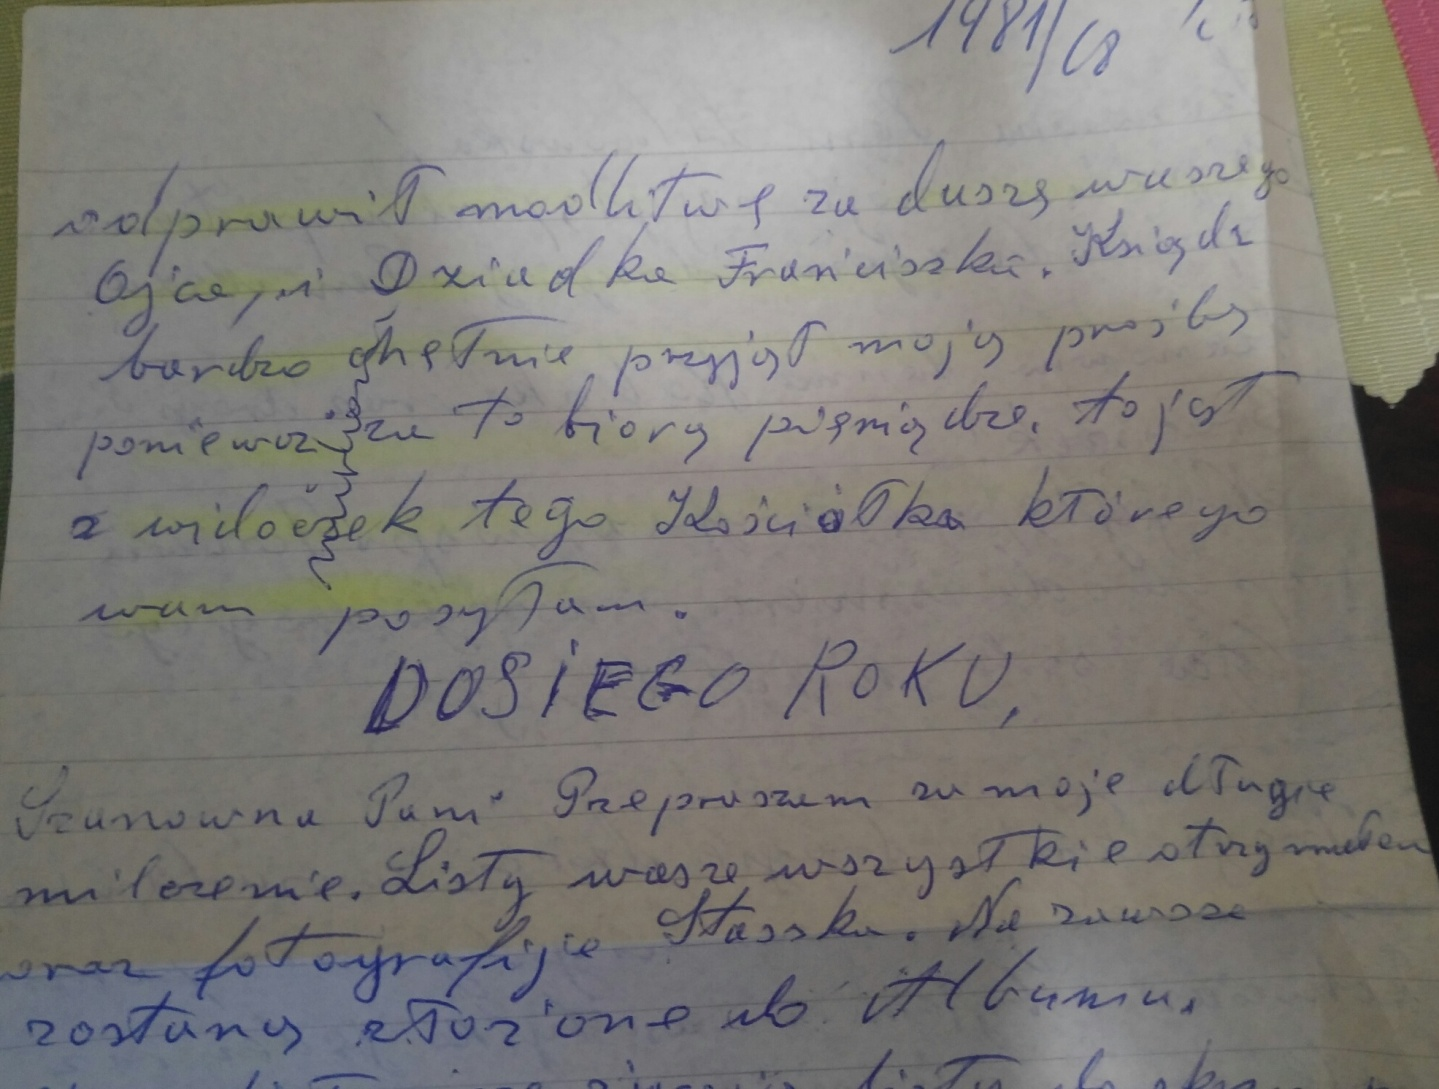 1981/68
odprawił modlitwę za duszę waszego
Ojca, i Dziadka Franciszka. Ksiądz
bardzo chętnie przyjął moją prośbę
ponieważ za to biorą pieniądze. to jest
z widoczek tego Kościółka którego
wam posyłam.
DOSIEGO ROKU,
Szanowna Pani Przepraszam za moje długie
milczenie. Listy wasze wszystkie otrzymałem
oraz fotografije Stasska. Na zawsze
zostaną złożone do Albumu.